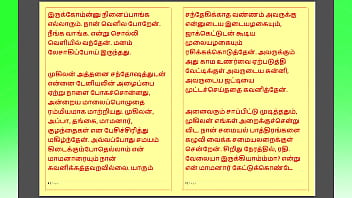 இருக்கோம்னு நினைப்பாங்க
எல்லாரும். நான் வெளில போறேன்.
நீங்க வாங்க. என்று சொல்லி
வெளியில் வந்தேன். மனம்
லேசாகிப்போய் இருந்தது.
முகிலன் அத்தனை சந்தோஷத்துடன்
என்னை டேனியலின் அழைப்பை
ஏற்று நாளை போகச்சொன்னது,
அன்றைய மாலைப்பொழுதை
ரம்மியமாக மாற்றியது. முகிலன்,
அப்பா, தங்கை, மாமனார்,
குழந்தைகள் என பேசிச்சிரித்து
மகிழ்ந்தேன். அவ்வப்போது சமயம்
கிடைக்கும்போதெல்லாம் என்
மாமனாரையும் நான்
கவனிக்கத்தவறவில்லை. யாரும்
சந்தேகிக்காத வண்ணம் அவருக்கு
என்னுடைய இடையழகையும்,
ஜாக்கெட்டுடன் கூடிய
முலையழகையும்
ரசிக்கக்கொடுத்தேன். அவருக்கும்
அது காம உணர்வை ஏற்படுத்தி
வேட்டிக்குள் அவருடைய சுன்னி,
அவருடைய ஜட்டியை
முட்டச்செய்ததை கவனித்தேன்.
அனைவரும் சாப்பிட்டு முடித்ததும்,
முகிலன் எங்கள் அறைக்குச்சென்று
விட, நான் சமையல் பாத்திரங்களை
கழுவி வைக்க சமையலறைக்குள்
சென்றேன். சிறிது நேரத்தில், ரதி.
வேலையா இருக்கியாம்மா? என்று
என் மாமனார் கேட்டுக்கொண்டே